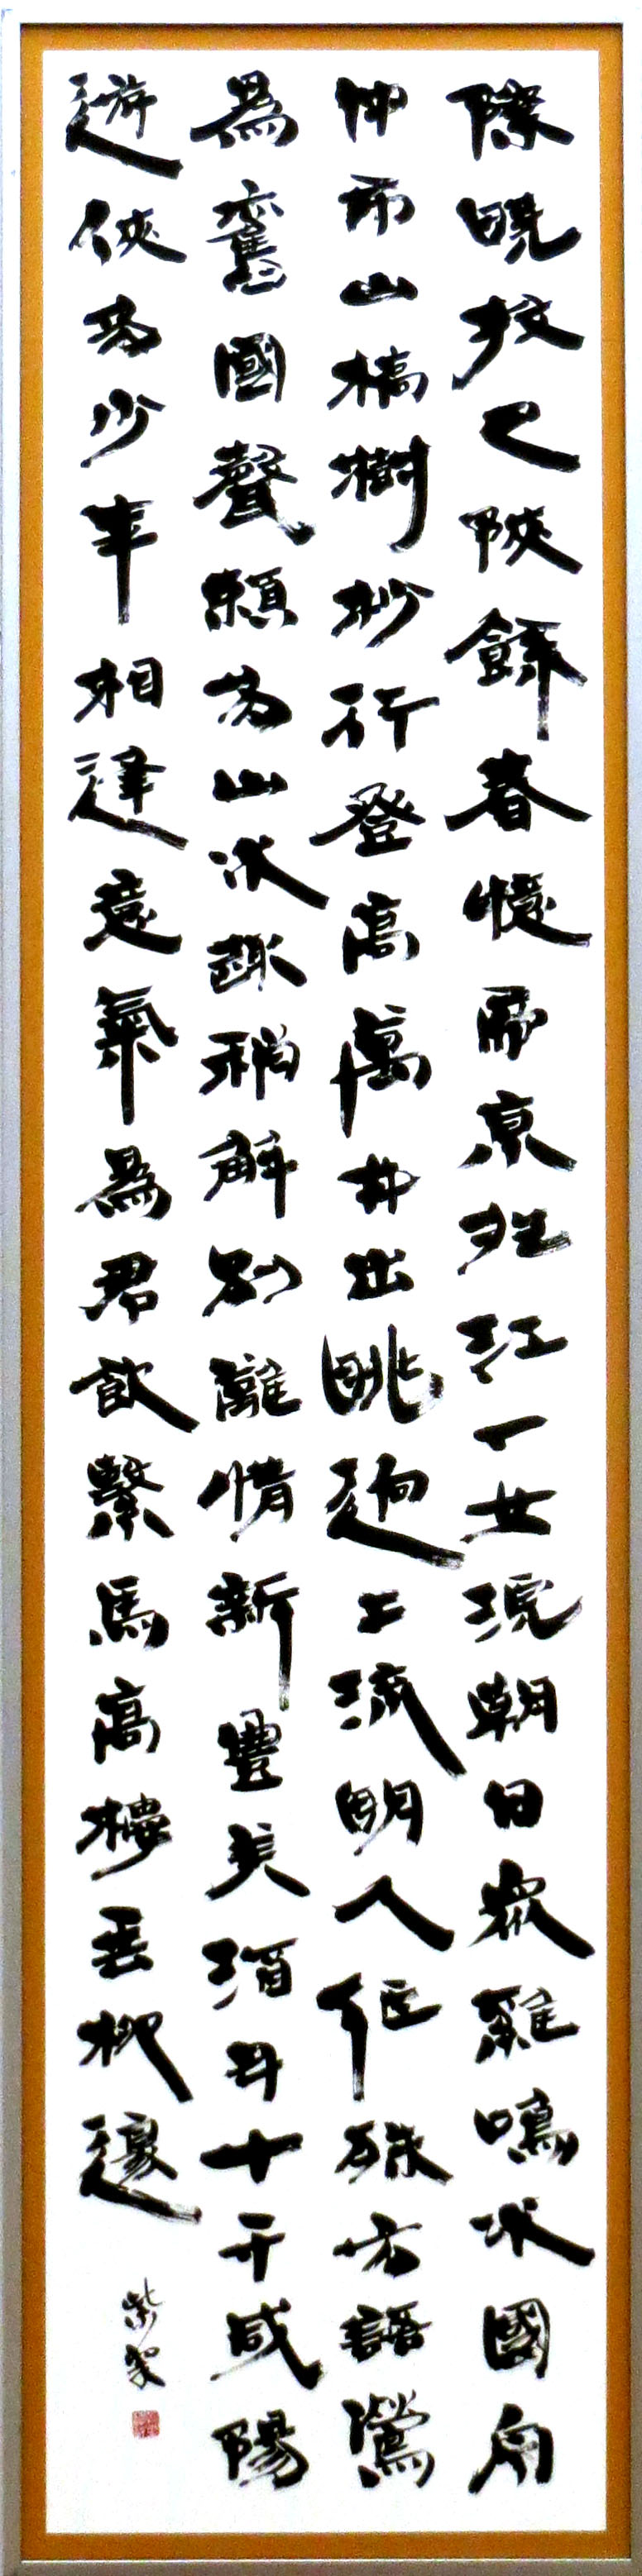 際曉投巴陜餘春憶帝京夝江一女浣朝日眾雞鳴水國舟
中市山橋樹杪行登高萬井出眺迥二流明人作殊方語鶯
為舊國聲賴多山水趣稍解別離情新豐美酒斗十千咸陽
遊俠多少年相逢意氣為君飲繫馬高樓垂柳邊